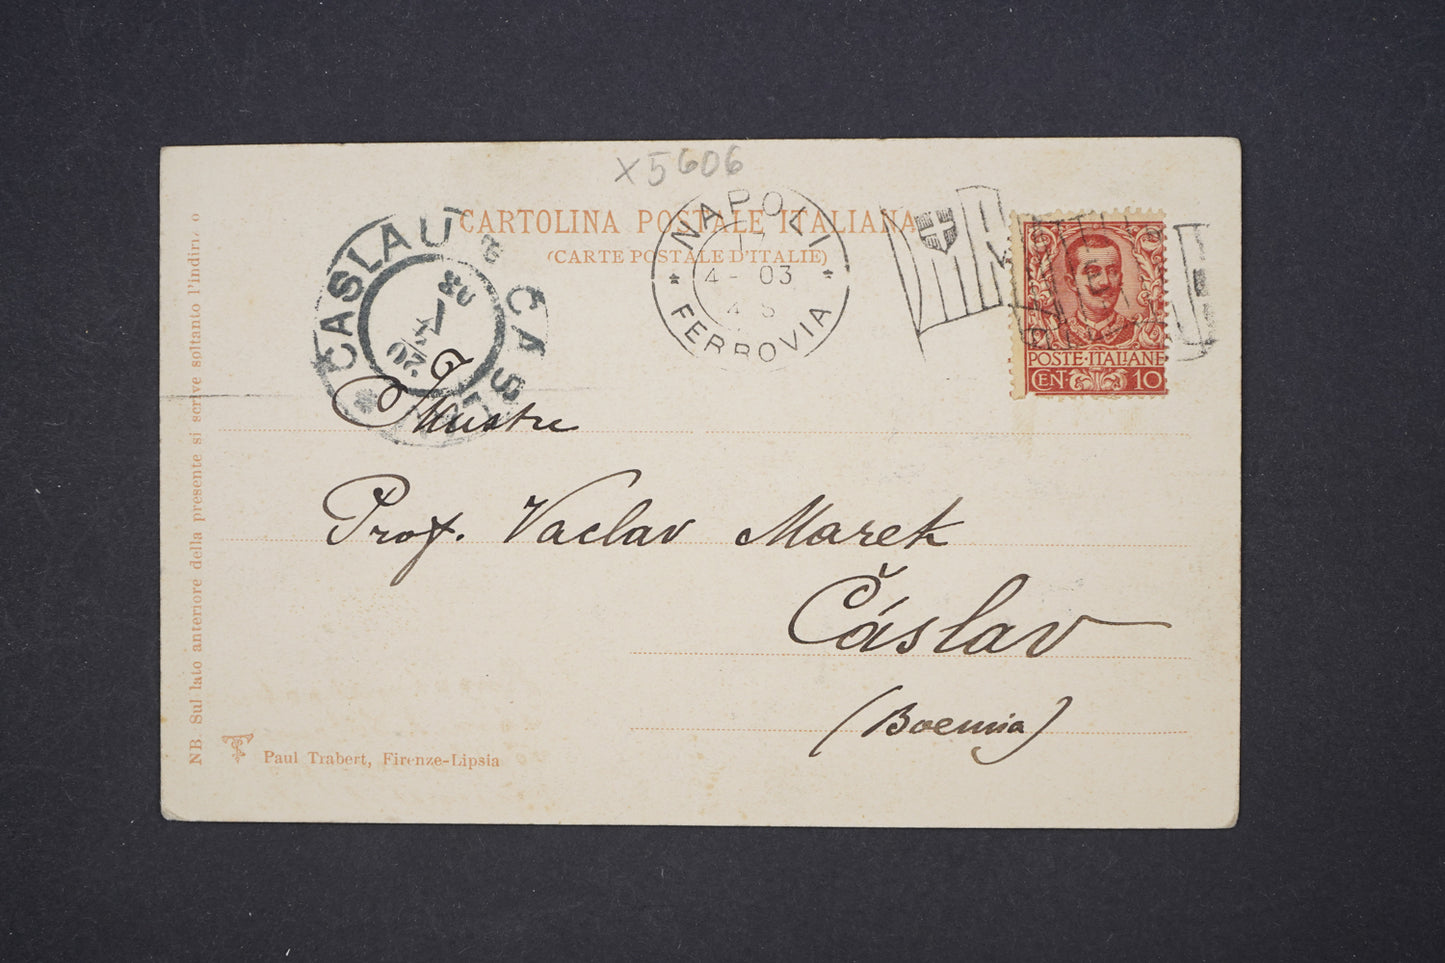 X5606
CARTOLINA POSTALE ITALIANA
(CARTE POSTALE D'ITALIE)
NAPOLI
4- 03
FERROVIA
CASLAU
20
4
03
ČÁSLAV
POSTE·ITALIANE
CEN 10
Illustre
Prof. Vaclav Marek
Čáslav
(Boemia)
NB. Sul lato anteriore della presente si scrive soltanto l'indiri
Paul Trabert, Firenze-Lipsia